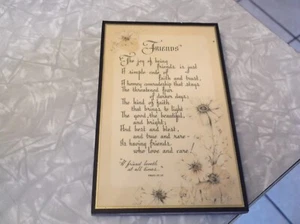 "Friends"
The joy of being
friends is just
A simple code of
faith and trust,
A homey comradeship that stays
The threatened fear
of darker days;
The kind of faith
that brings to light
The good, the beautiful,
and bright;
And best and blest,
and true and rare -
Is having friends
who love and care!
A friend loveth
at all times.